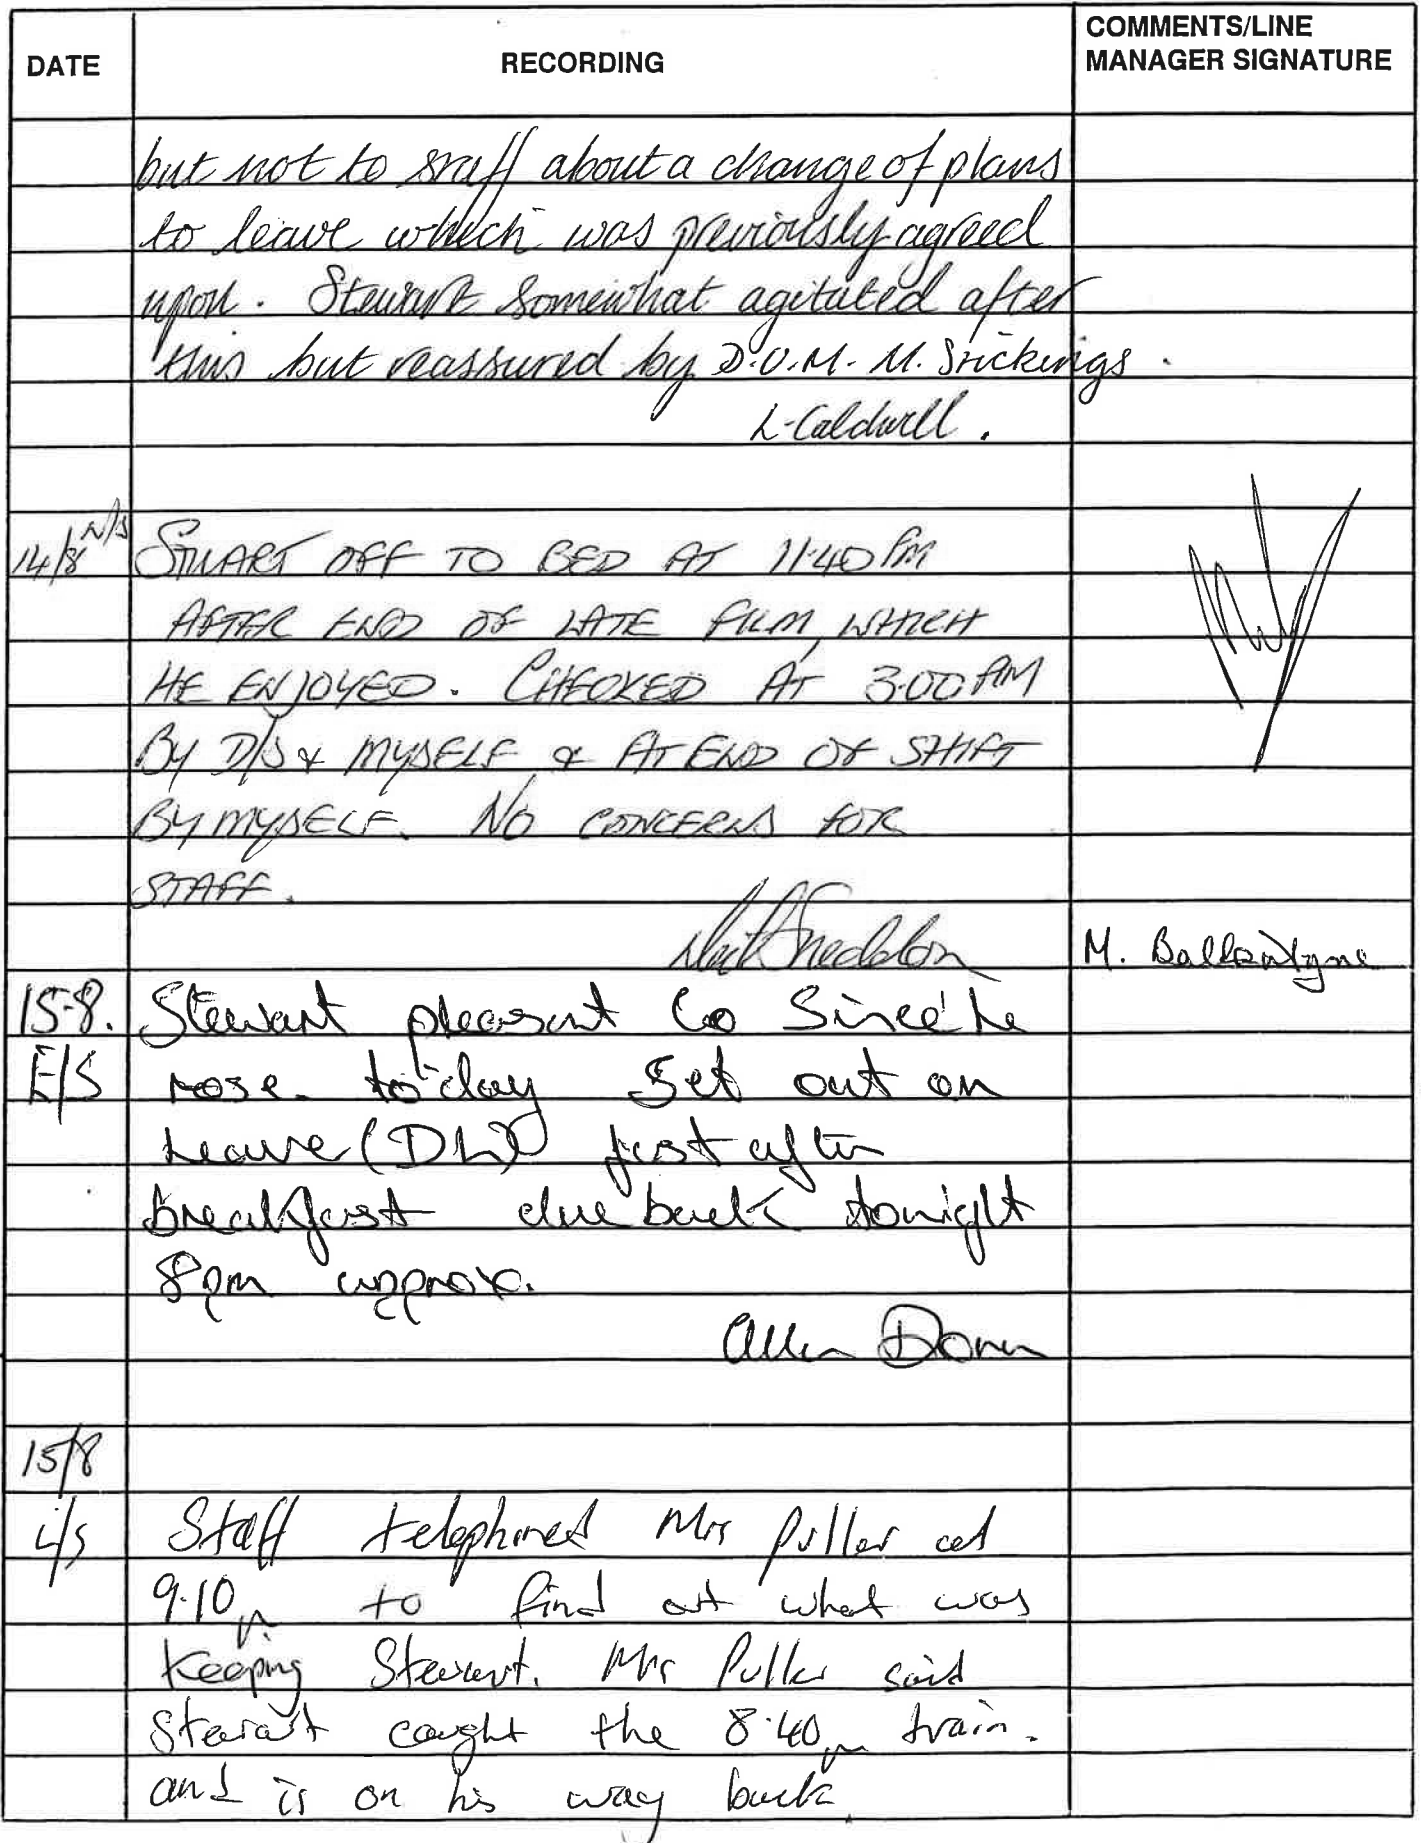 DATE
RECORDING
COMMENTS/LINE
MANAGER SIGNATURE
but not to staff about a change of plans
to leave which was previously agreed
upon. Stewart somewhat agitated after
this but reassured by D.U.M. M. Stickings.
L. Caldwell.
14/8 N/S STUART OFF TO BED AT 11.40PM
AFTER END OF LATE FILM, WHICH
HE ENJOYED. CHECKED AT 3.00AM
BY D/S & MYSELF & AT END OF SHIFT
BY MYSELF. NO CONCERNS FOR
STAFF.
Neil Sneddon M. Ballantyne
15-8. Stewart pleasant Co Since he
E/S rose today Set out on
Leave (DL) just after
breakfast due back tonight
8pm approx.
Allen
15/8
L/S Staff telephoned Mrs Puller at
9.10pm to find out what was
keeping Stewart. Mrs Puller said
Stewart caught the 8.40pm train.
and is on his way back